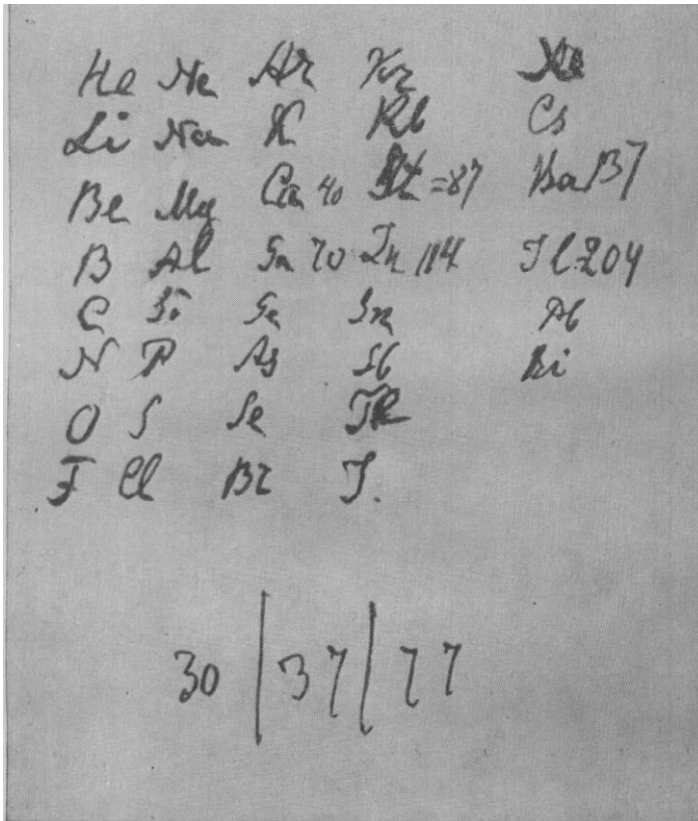 He Ne Ar Kr Xe
Li Na K Rb Cs
Be Mg Ca 40 =87 Ba 137
B Al Ga 70 In 114 Tl 204
C Si Ge Sn Pb
N P As Sb Bi
O S Se Te
F Cl Br J.
30 | 37 | 77